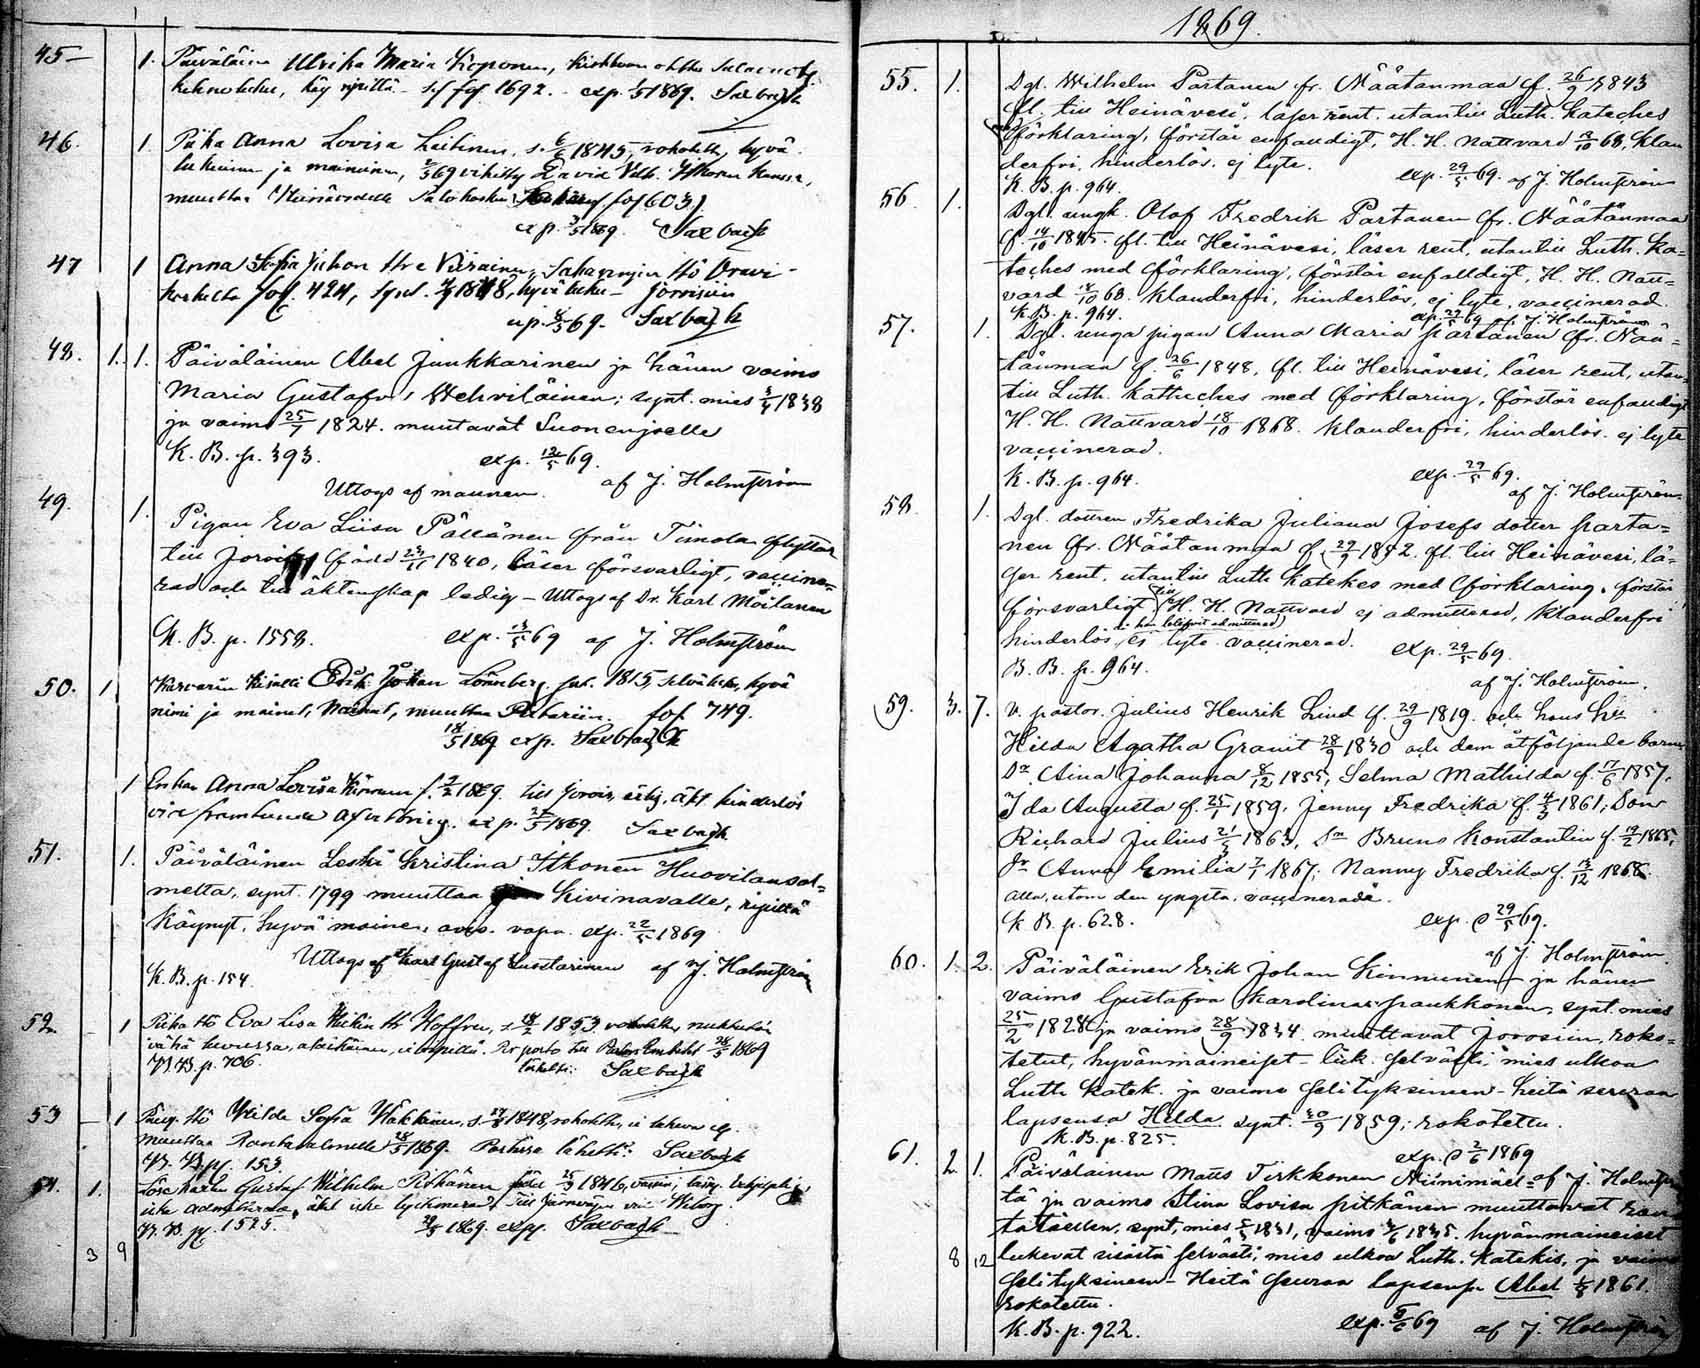 45 1. Päiväläinen Ulrika Maria
käy ripillä fol 1692. exp. 1869. Saxbäck
46. 1. Piika Anna Lovisa s. 6/6 1845, rokotettu, hyvä
ja maininen, 69 vihitty David Itkonen kanssa,
muuttaa fol 603
exp. 3/5 1869. Saxbäck
47 1 Anna Sofia Juhon
fol. 424, synt. 1848, hyvä luku - Joroisiin
exp. 8/5 69. Saxbäck
48. 1. 1. Päiväläinen Abel Junkkarinen ja hänen vaimo
Maria Gustafva Wehviläinen; synt. mies 1838
ja vaimo 25/7 1824. muuttavat Suonenjoelle
K. B. p. 393. exp. 12/5 69.
Uttogs af mannen. af J. Holmström
49. 1. Pigan Eva Liisa Pällänen från Timola flyttar
till Jorois född 23/11 1840, läser försvarligt, vaccine=
rad och till äktenskap ledig - Uttogs af Dr. Karl Möilanen
K. B. p. 1558. exp. 13/5 69 af J. Holmström
50. 1 Karvarin Kisälli Erik Johan Lönnberg syt. 1815, selvä luku, hyvä
nimi ja mainet, muuttaa Pietariin. fol. 749.
18/5 1869 exp. Saxbäck
1 Enkan Anna Lovisa f. till Jorois, ärlig, äkt. hinderlös
exp. 1869. Saxbäck
51. 1. Päiväläinen Leski Kristina Itkonen Huovilansal=
melta, synt. 1799 muuttaa Kivinavalle, ripillä
Käynyt, hyvä maine, avs. vapa. exp. 22/5 1869
Uttogs af Karl Gustaf af J. Holmström
K. B. p. 154.
52 1 Piika Eva Lisa Hoffren, s. 18/2 1853 rokotettu,
vähä luvussa, 28/5 1869
K. B. p. 706. läheltti: Saxbäck
53 — 1 Wilda Sofia s. 1848, rokotettu,
muuttaa Rantasalmelle 28/5 1869. lähetti: Saxbäck
K. B. p. 153.
54. 1. Gustaf Wilhelm Pitkänen född 25/3 1846, vaccin,
icke admitterad, till
K. B. p. 1525. 1869. exp. Saxbäck
3 9
1869.
55. 1. Dgl. Wilhelm Partanen fr. Näätänmaa f. 26/9 1843
fl. till Heinävesi, läser rent. utantill Luth. kateches
med förklaring, förstår enfaldigt, H. H. Nattvard 18/10 68, klan
derfri, hinderlös. ej lyte. exp. 29/5 69. af J. Holmström
K. B. p. 964.
56. 1. Dgl. ungk. Olof Fredrik Partanen fr. Näätänmaa
f. 14/10 1845. fl. till Heinävesi, läser rent, utantill Luth. ka=
teches med förklaring, förstår enfalldigt, H. H. Natt=
vard 18/10 68. klanderfri, hinderlös, ej lyte, vaccinerad.
K. B. p. 964. exp. 29/5 69 af J. Holmström
57. 1. Dgl. unga pigan Anna Maria Partanen fr. Nää=
tänmaa f. 26/6 1848, fl. till Heinävesi, läser rent, utan=
till Luth. katteches med förklaring, förstår enfaldigt
H. H. Nattvard 18/10 1868. klanderfri, hinderlös. ej lyte
vaccinerad.
K. B. p. 964. exp. 29/5 69.
af J. Holmström
58. 1. Dgl. dottren Fredrika Juliana Josefs dotter Parta=
nen fr. Näätänmaa f. 29/9 1852. fl. till Heinävesi, lä=
ser rent. utantill Luth katekes med förklaring, förstår
försvarligt, till H. H. Nattvard ej admitterad, klanderfri
hinderlös, ej lyte. vaccinerad. exp. 29/5 69.
K. B. p. 964.
af J. Holmström.
59. 3. 7. V. pastor. Julius Henrik Lind f. 29/9 1819. och hans hu
Hilda Agatha Granit 28/9 1830 och dem åtföljande barn
Dr Aina Johanna 8/12 1855, Selma Mathilda f. 17/6 1857,
Ida Augusta f. 25/1 1859, Jenny Fredrika f. 4/3 1861; Son
Richard Julius 21/5 1863, Sn Bruno Konstantin f. 19/2 1865,
Dr Anna Emilia 7/1 1867; Nanny Fredrika f. 13/12 1868.
alla, utom den yngsta, vaccinerade.
K B. p. 628. exp. d 29/5 69.
af J. Holmström.
60. 1. 2. Päiväläinen Erik Johan Kinnunen ja hänen
vaimo Gustafva Karolina Paukkonen, synt. mies
25/2 1828 ja vaimo 28/9 1834 muuttavat Joroisiin, roko=
tetut, hyvänmaineiset - luk. selvästi, mies ulkoa
Luth. Katek. ja vaimo selityksineen - heitä seuraa
lapsensa Hilda synt. 20/9 1859; rokotettu.
K. B. p. 825. exp. d 2/6 1869
af J. Holmström
61. 2 1. Päiväläinen Matts Tirkkonen Niinimäel=
tä ja vaimo Stina Lovisa Pitkänen muuttavat
synt. mies 1831, vaimo 1835. hyvänmaineiset
8 12 lukevat sisästä selvästi, mies ulkoa Luth. Katekis, ja vaimo
selityksineen - Heitä seuraa lapsensa Abel 1861.
rokotettu.
K. B. p. 922. exp. 5/6 69 af J. Holmström